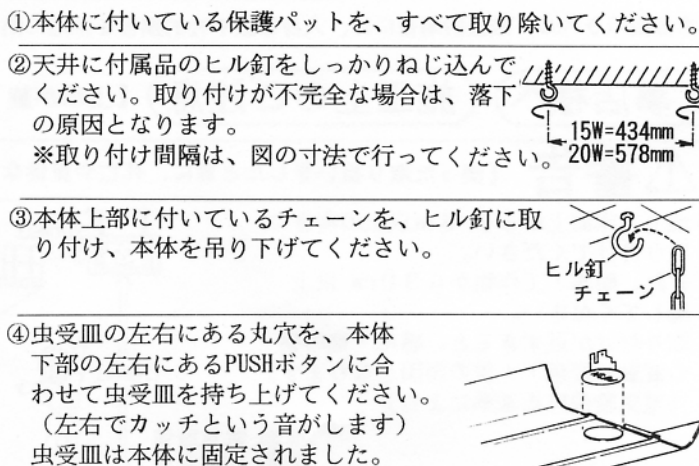 ①本体に付いている保護パットを、すべて取り除いてください。
②天井に付属品のヒル釘をしっかりねじ込んで
ください。取り付けが不完全な場合は、落下
の原因となります。
※取り付け間隔は、図の寸法で行ってください。
15W=434mm
20W=578mm
③本体上部に付いているチェーンを、ヒル釘に取
り付け、本体を吊り下げてください。
ヒル釘
チェーン
④虫受皿の左右にある丸穴を、本体
下部の左右にあるPUSHボタンに合
わせて虫受皿を持ち上げてください。
（左右でカッチという音がします）
虫受皿は本体に固定されました。